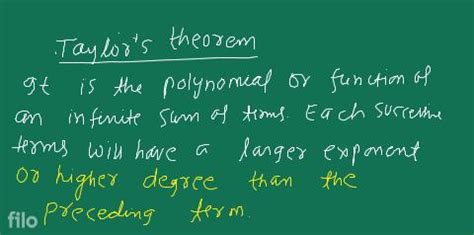 .Taylor's theorem
It is the polynomial or function of
an infinite sum of terms. Each successive
terms will have a larger exponent
or higher degree than the
preceding term.
filo